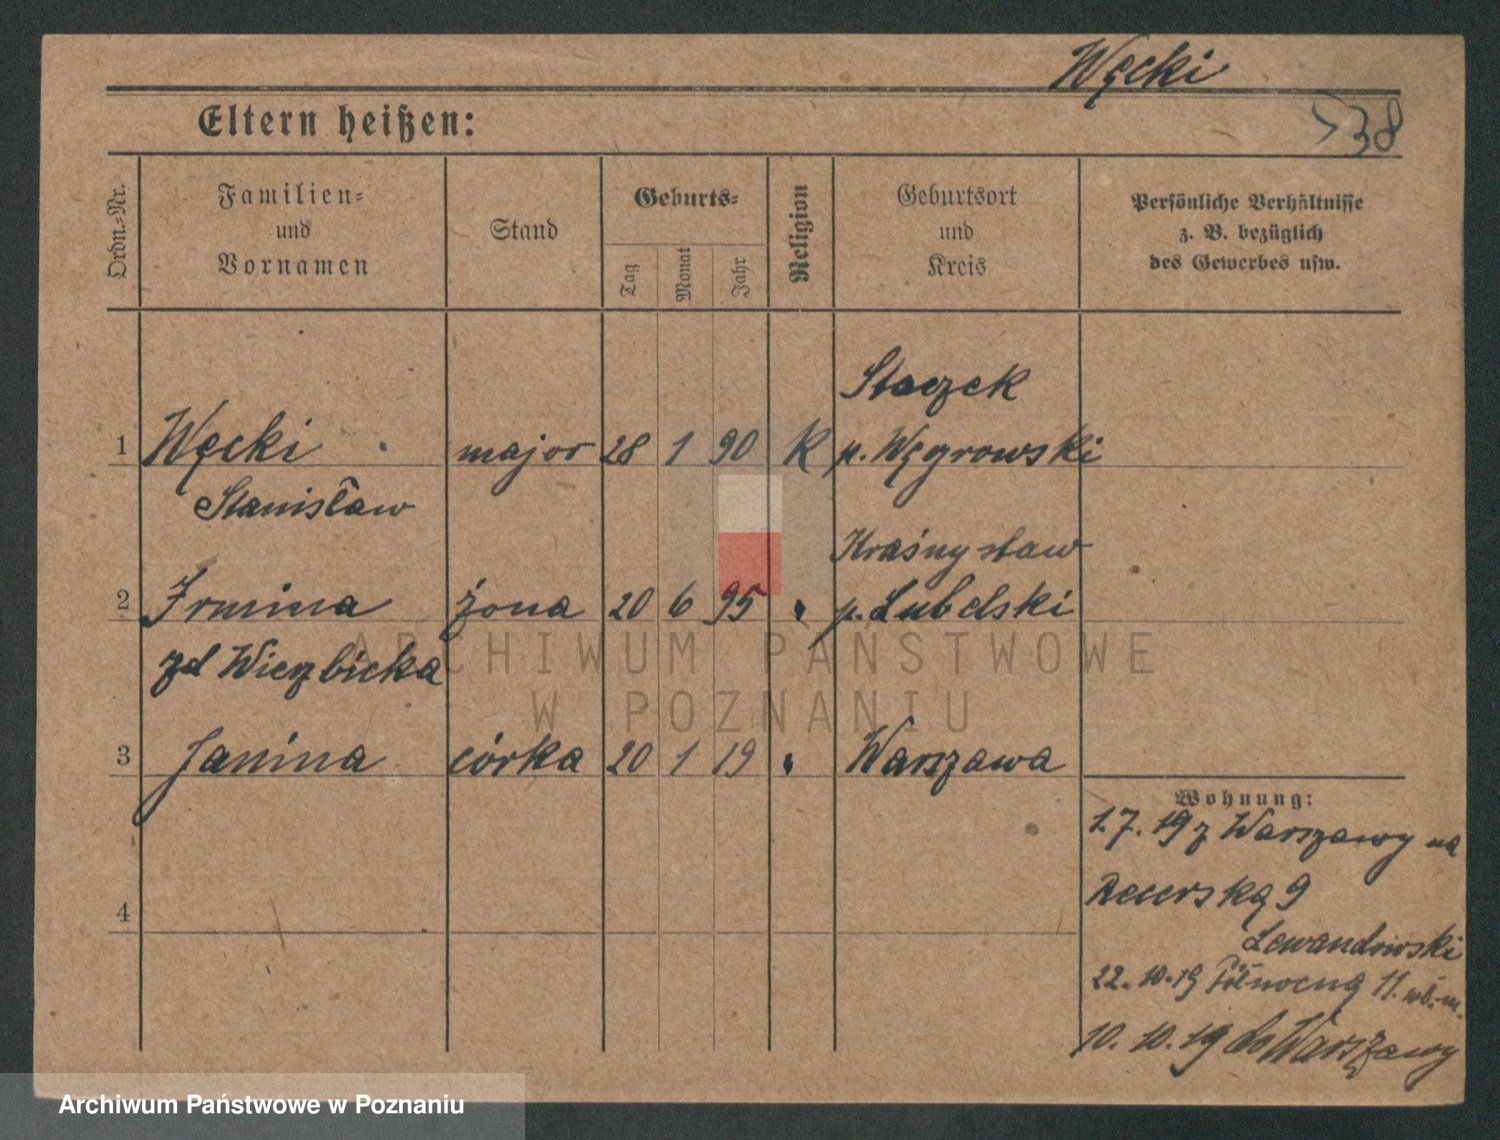 Węcki
Eltern heißen:
38
Ordn.-Nr.
Familien-
und
Vornamen
Stand
Geburts-
Tag
Monat
Jahr
Religion
Geburtsort
und
Kreis
Persönliche Verhältnisse
z. B. bezüglich
des Gewerbes usw.
Staczek
1 Węcki major 28 1 90 K p. Węgrowski
Stanisław
Kraśnystaw
2 Irmina żona 20 6 95 " p. Lubelski
zd Wierzbicka
ARCHIWUM PAŃSTWOWE
W POZNANIU
3 Janina córka 20 1 19 " Warszawa
Wohnung:
1.7.19 z Warszawy na
9
4
Lewandowski
22.10.19 Północną 11. wł. m.
10.10.19 do Warszawy
Archiwum Państwowe w Poznaniu